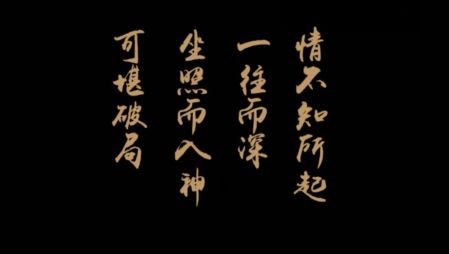 情不知所起
一往而深
坐照而入神
可堪破局